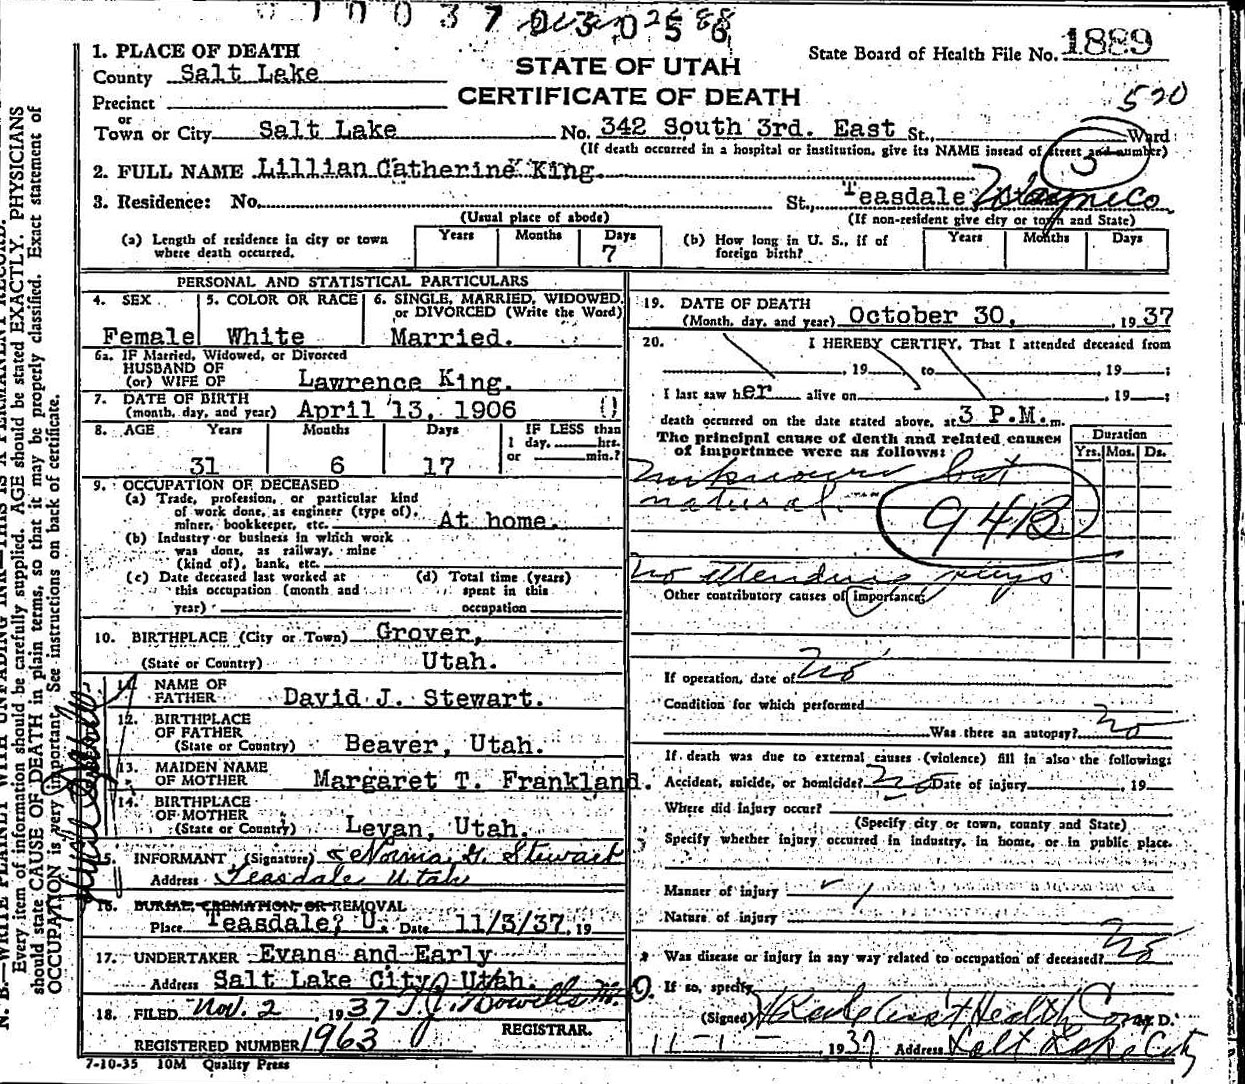 1. PLACE OF DEATH
County Salt Lake
Precinct
or
Town or City Salt Lake No. 342 South 3rd. East St., Ward
(If death occurred in a hospital or institution, give its NAME insead of street and number)
STATE OF UTAH
CERTIFICATE OF DEATH
State Board of Health File No. 1889
520
3
2. FULL NAME Lillian Catherine King.
3. Residence: No. St., Teasdale, Wayne Co.
(Usual place of abode) (If non-resident give city or town and State)
(a) Length of residence in city or town where death occurred. Years Months Days 7
(b) How long in U. S., if of foreign birth? Years Months Days
PERSONAL AND STATISTICAL PARTICULARS
4. SEX 5. COLOR OR RACE 6. SINGLE, MARRIED, WIDOWED, or DIVORCED (Write the Word)
Female White Married.
6a. IF Married, Widowed, or Divorced
HUSBAND OF
(or) WIFE OF Lawrence King.
7. DATE OF BIRTH
(month, day, and year) April 13, 1906
8. AGE Years Months Days IF LESS than
1 day, hrs.
or min.?
31 6 17
9. OCCUPATION OF DECEASED
(a) Trade, profession, or particular kind
of work done, as engineer (type of),
miner, bookkeeper, etc. At home.
(b) Industry or business in which work
was done, as railway, mine
(kind of), bank, etc.
(c) Date deceased last worked at
this occupation (month and
year)
(d) Total time (years)
spent in this
occupation
10. BIRTHPLACE (City or Town) Grover,
(State or Country) Utah.
11. NAME OF
FATHER David J. Stewart.
12. BIRTHPLACE
OF FATHER
(State or Country) Beaver, Utah.
13. MAIDEN NAME
OF MOTHER Margaret T. Frankland.
14. BIRTHPLACE
OF MOTHER
(State or Country) Levan, Utah.
15. INFORMANT (Signature) Norma G. Stewart
Address Teasdale Utah
16. BURIAL, CREMATION, OR REMOVAL
Place Teasdale, U. Date 11/3/37, 19
17. UNDERTAKER Evans and Early
Address Salt Lake City, Utah.
18. FILED Nov. 2, 1937
REGISTRAR.
REGISTERED NUMBER 1963
7-10-35 10M Quality Press
19. DATE OF DEATH
(Month, day, and year) October 30, , 1937
20. I HEREBY CERTIFY, That I attended deceased from
, 19 to , 19 ;
I last saw her alive on , 19 ;
death occurred on the date stated above, at 3 P.M. m.
The principal cause of death and related causes
of importance were as follows:
Duration
Yrs. Mos. Ds.
unknown but
natural.
94B
No attending phys
Other contributory causes of importance:
If operation, date of No
Condition for which performed
Was there an autopsy? no
If death was due to external causes (violence) fill in also the following:
Accident, suicide, or homicide? No Date of injury , 19
Where did injury occur?
(Specify city or town, county and State)
Specify whether injury occurred in industry, in home, or in public place.
Manner of injury
Nature of injury
Was disease or injury in any way related to occupation of deceased? No
If so, specify
(Signed) Health Com M. D.
11-1- 1937 Address Salt Lake City
N. B.—WRITE PLAINLY WITH UNFADING INK—THIS IS A PERMANENT RECORD.
Every item of information should be carefully supplied. AGE should be stated EXACTLY. PHYSICIANS
should state CAUSE OF DEATH in plain terms, so that it may be properly classified. Exact statement of
OCCUPATION is very important. See instructions on back of certificate.